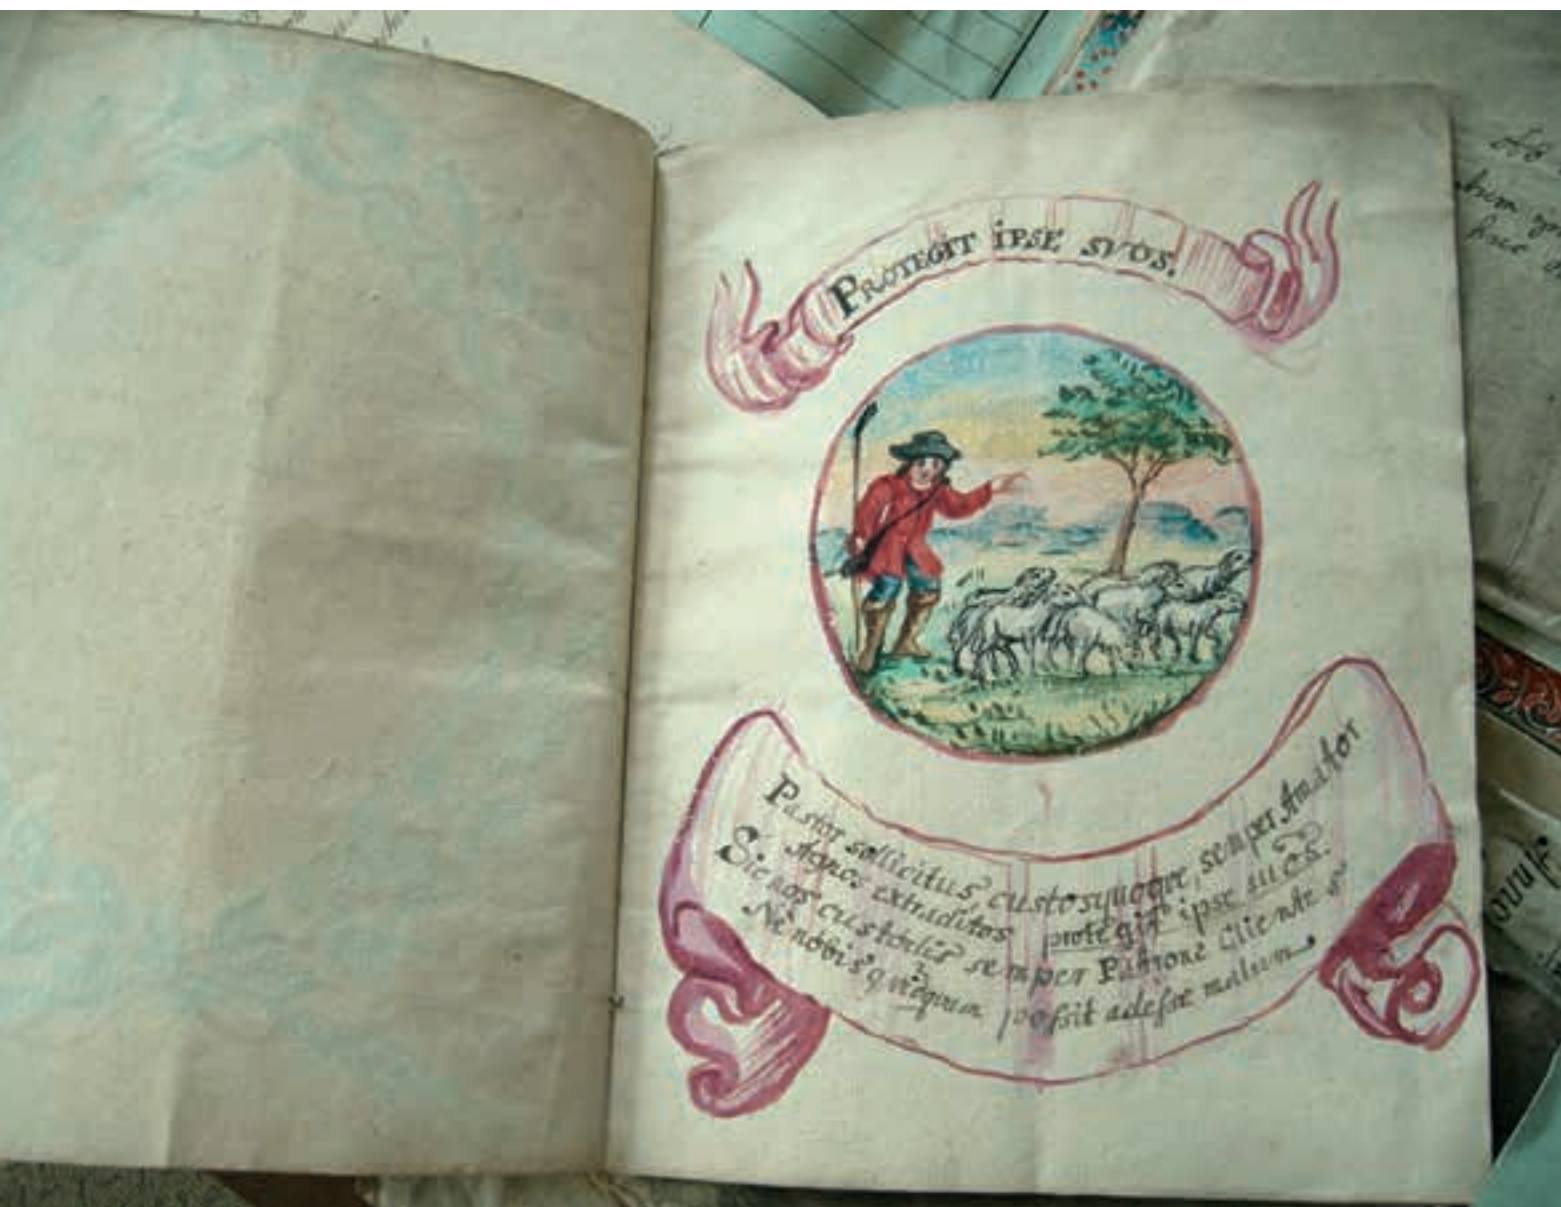 PROTEGIT IPSE SVOS.
Pastor sollicitus, custosquoque, semper Amator
Agnos extraditos protegit ipse suos.
Sic nos custodis semper Patrone Clientes
Ne nobis quicquam possit adesse malum.